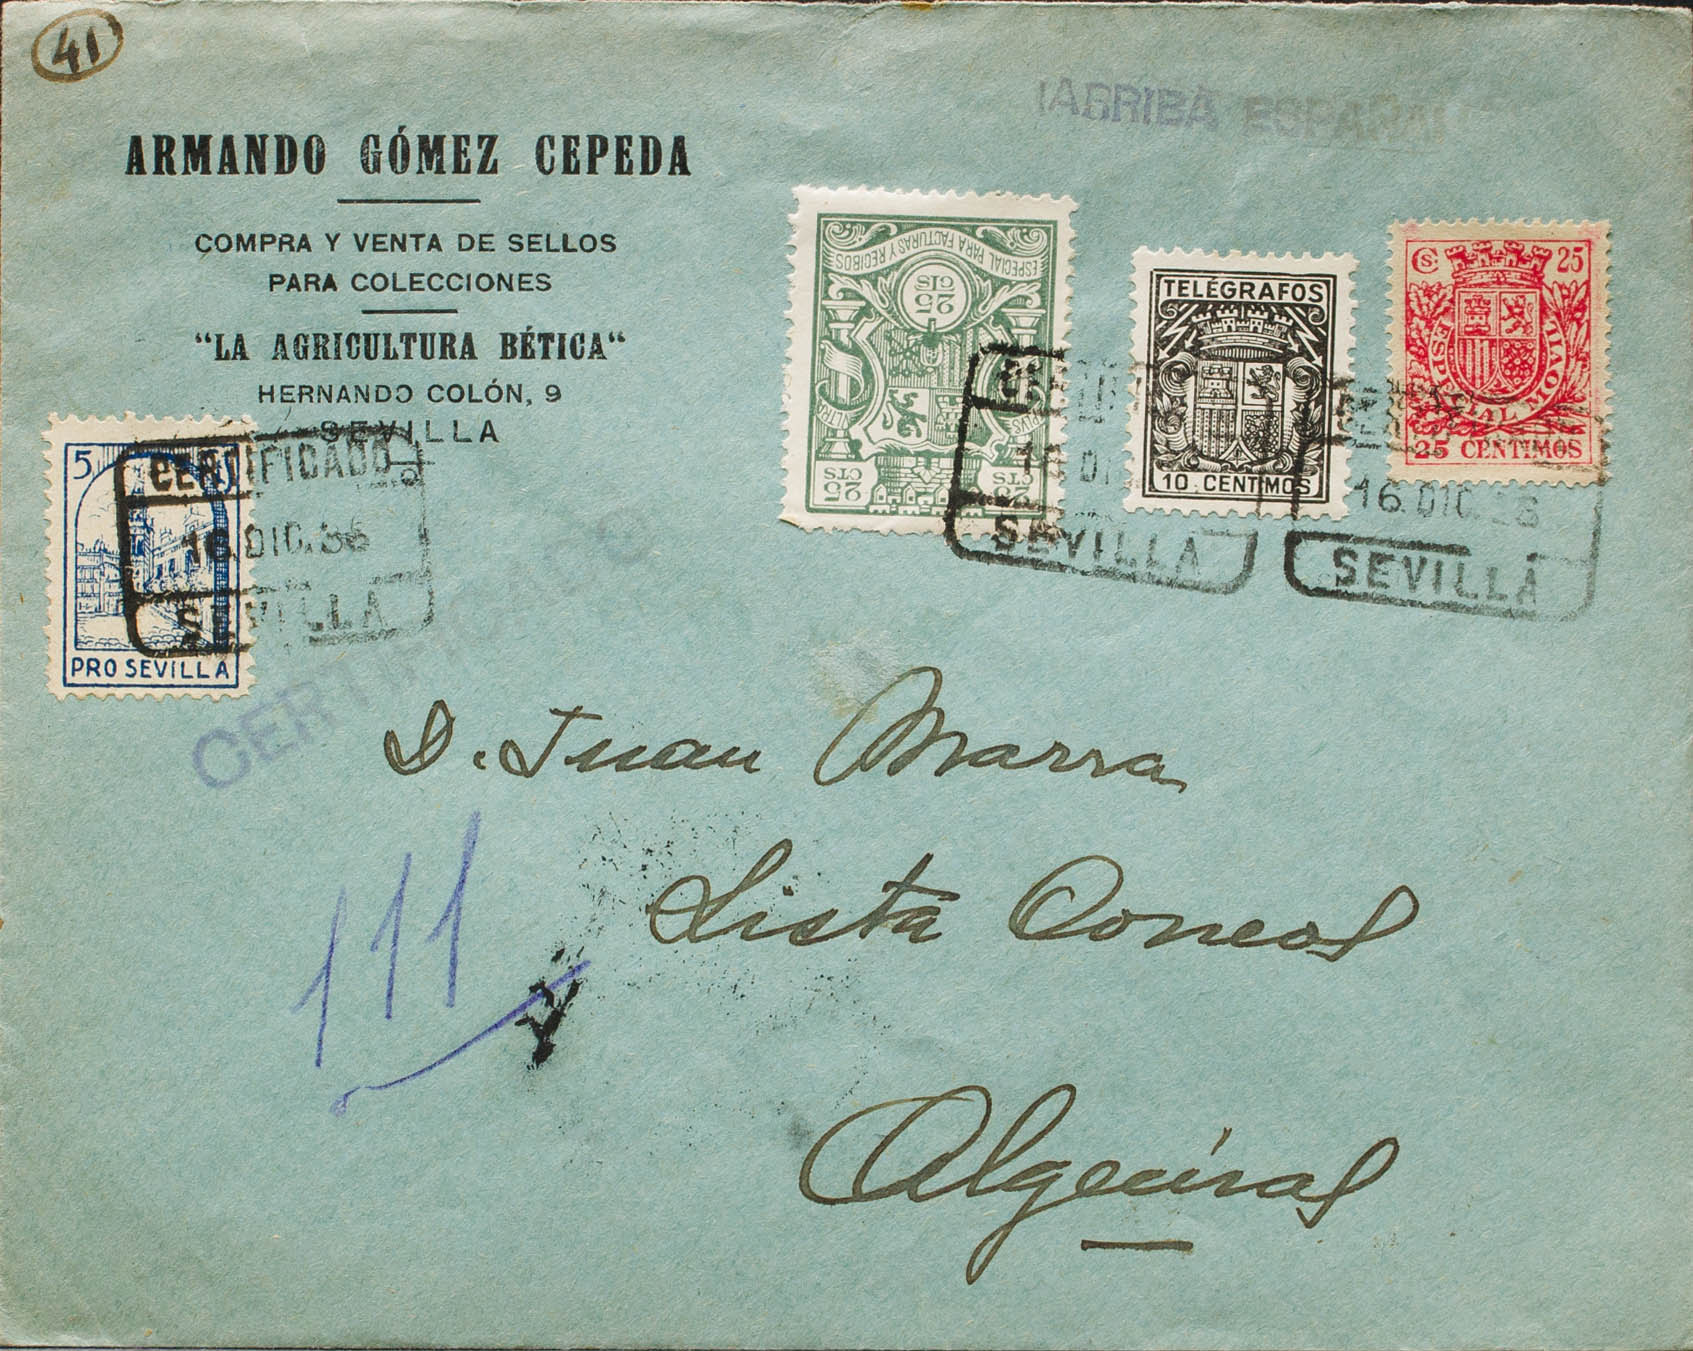 41
¡ARRIBA ESPAÑA!
ARMANDO GÓMEZ CEPEDA
COMPRA Y VENTA DE SELLOS
PARA COLECCIONES
"LA AGRICULTURA BÉTICA"
HERNANDO COLÓN, 9
SEVILLA
ESPECIAL PARA FACTURAS Y RECIBOS
25 CTS
PLUS ULTRA
25 CTS
25 CTS
TELÉGRAFOS
10 CENTIMOS
CS. 25
ESPECIAL MOVIL
25 CENTIMOS
5
PRO SEVILLA
CERTIFICADO
16.DIC.36
SEVILLA
16 DI
SEVILLA
16.DIC.36
SEVILLA
CERTIFICADO
D. Juan Marra
Lista Correos
Algeciras
111